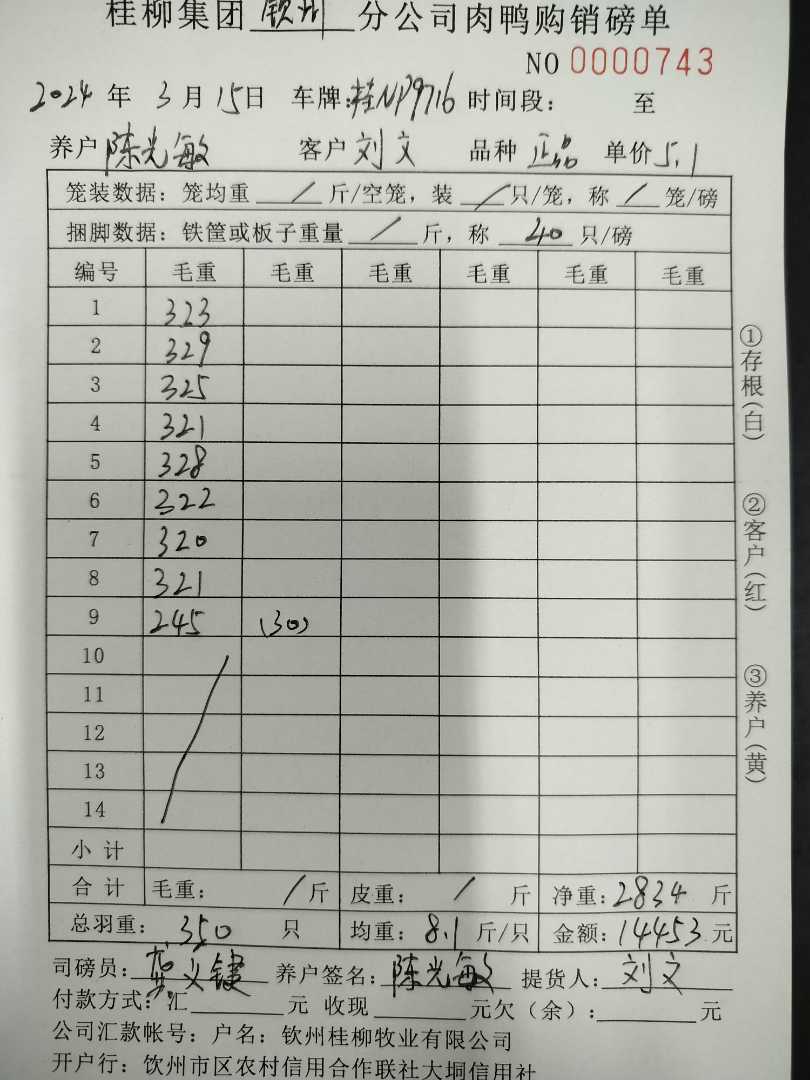 桂柳集团 钦州 分公司肉鸭购销磅单
NO 0000743
2024 年 3 月 15 日 车牌:桂NP9716 时间段: 至
养户 陈光敏 客户 刘文 品种 正品 单价 5.1
笼装数据:笼均重 / 斤/空笼,装 / 只/笼,称 / 笼/磅
捆脚数据:铁筐或板子重量 / 斤,称 40 只/磅
编号 毛重 毛重 毛重 毛重 毛重 毛重
1 323
2 329
3 325
4 321
5 328
6 322
7 320
8 321
9 245 (30)
10
11
12
13
14
小计
合计 毛重: / 斤 皮重: / 斤 净重:2834 斤
总羽重: 350 只 均重:8.1 斤/只 金额:14453 元
司磅员: 义键 养户签名:陈光敏 提货人:刘文
付款方式:汇 元 收现 元欠(余): 元
公司汇款帐号:户名:钦州桂柳牧业有限公司
开户行:钦州市区农村信用合作联社大垌信用社
①存根(白)
②客户(红)
③养户(黄)